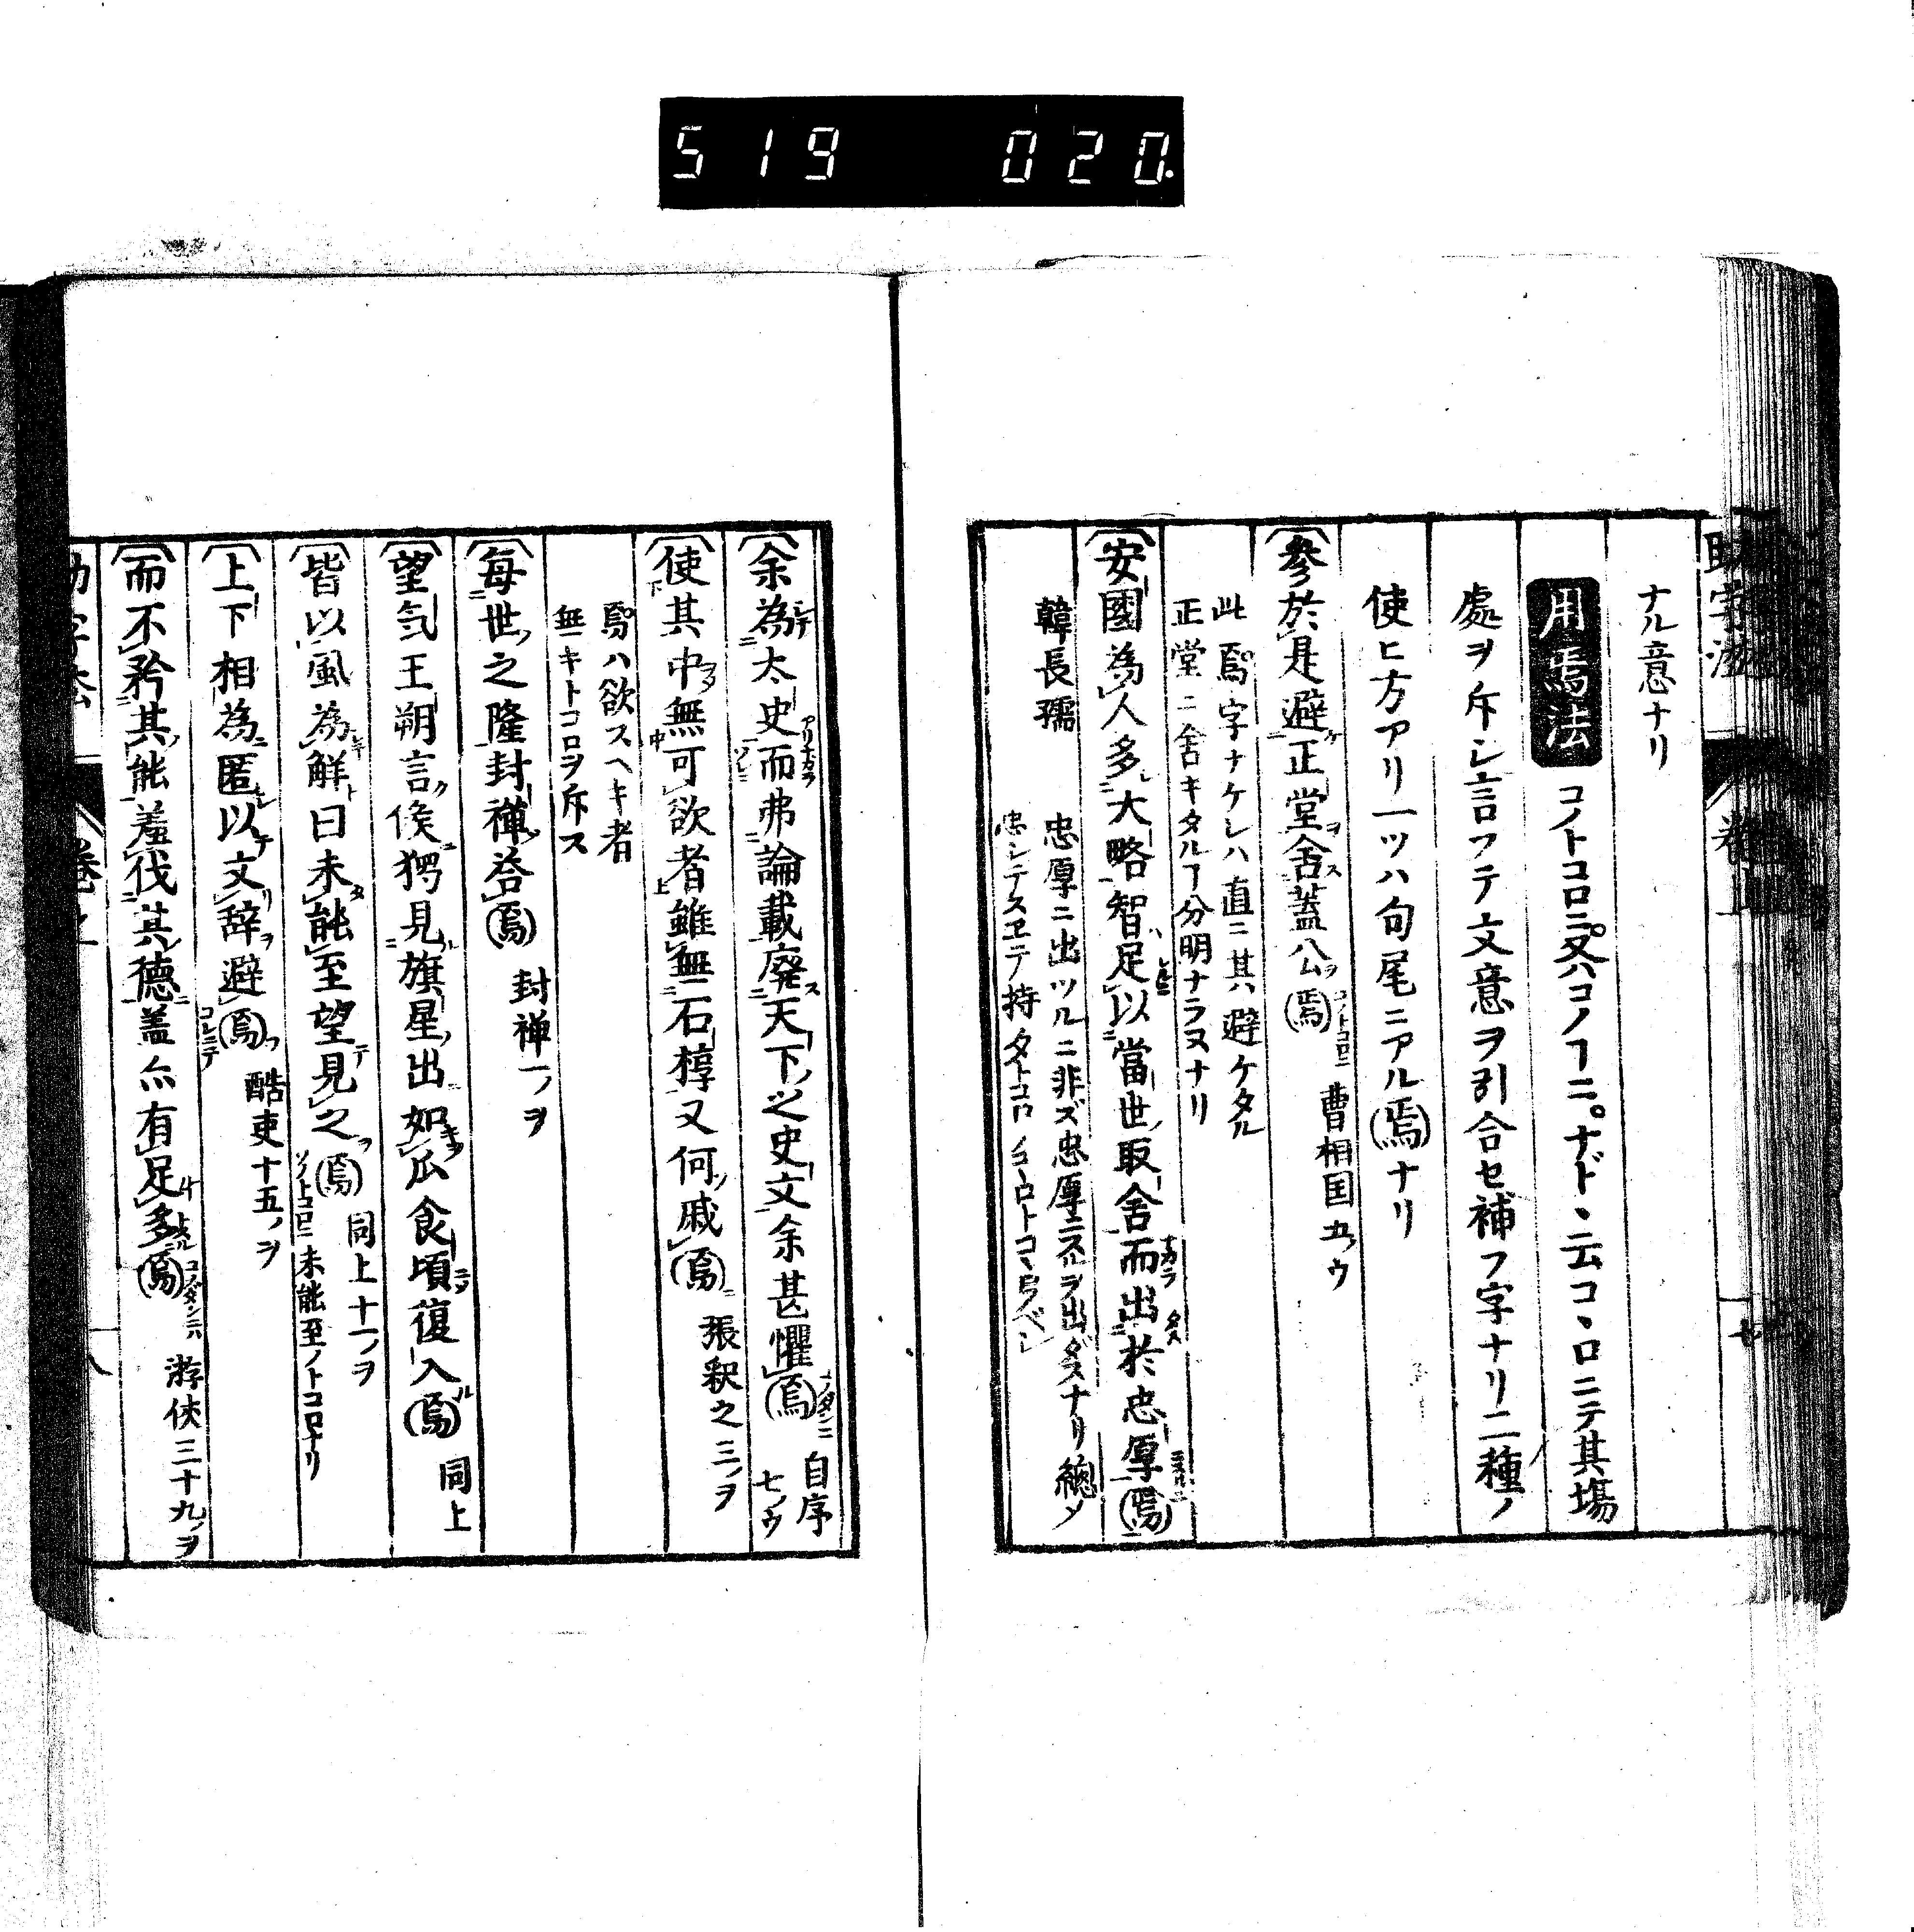 519 020.
助字法 卷上
ナル意ナリ
用焉法 コノトコロニ又ハコノヿニ。ナド、云コヽロニテ其場
處ヲ斥シ言フテ文意ヲ引合セ補フ字ナリ二種ノ
使ヒ方アリ一ツハ句尾ニアル焉ナリ
參於是避正堂舍蓋公焉 曹相国五ノウ
此焉字ナケレハ直ニ其ハ避ケタル
正堂ニ舍キタルヿ分明ナラヌナリ
安國為人多大略智足以當世取舍而出於忠厚焉
韓長孺 忠厚ニ出ツルニ非ズ忠厚ニスルヲ出ダスナリ總メ
余為太史而弗論載廢天下之史文余甚懼焉 自序七ノウ
使其中無可欲者雖無石椁又何戚焉 張釈之三ノヲ
焉ハ欲スヘキ者
無キトコロヲ斥ス
每世之隆封禪答焉 封禅一ノヲ
望気王朔言候獨見旗星出如瓜食頃復入焉 同上
皆以風為解曰未能至望見之焉 同上十一ノヲ
ソノトコロニ未能至ノトコロナリ
上下相為匿以文辞避焉 酷吏十五ノヲ
而不矜其能羞伐其德蓋亦有足多焉 游侠三十九ノヲ
助字法 卷之上